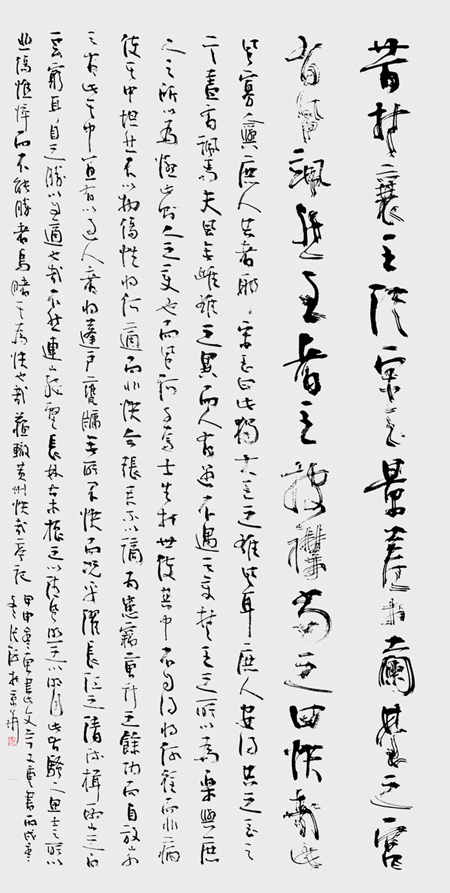 昔楚襄王從宋玉景差於蘭臺之宮
有風颯然至者王披襟當之曰快哉此
風寡人與庶人共者耶宋玉曰此獨大王之雄風耳庶人安得共之玉之
言蓋有諷焉夫風無雌雄之異而人有遇不遇之變楚王之所以為樂與庶
人之所以為憂此則人之變也而風何與焉士生於世使其中不自得將何往而非病
使其中坦然不以物傷性將何適而非快今張君不以謫為患竊會計之餘功而自放山水
之間此其中宜有以過人者將蓬戶甕牖無所不快而況乎濯長江之清流揖西山之白
雲窮耳目之勝以自適也哉不然連山絕壑長林古木振之以清風照之以明月此皆騷人思士之所以
悲傷憔悴而不能勝者烏睹其為快也哉蘇轍黃州快哉亭記